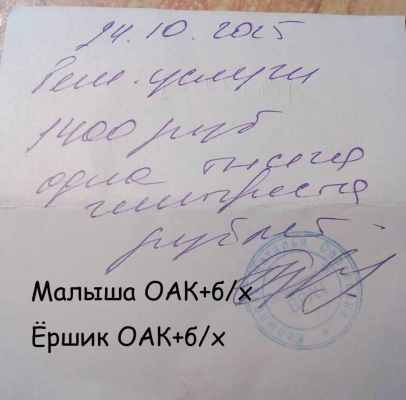 24.10.2025
Рем. услуги
1400 руб
одна тысяча
четыреста
рублей
Малыша ОАК+б/х
Ёршик ОАК+б/х